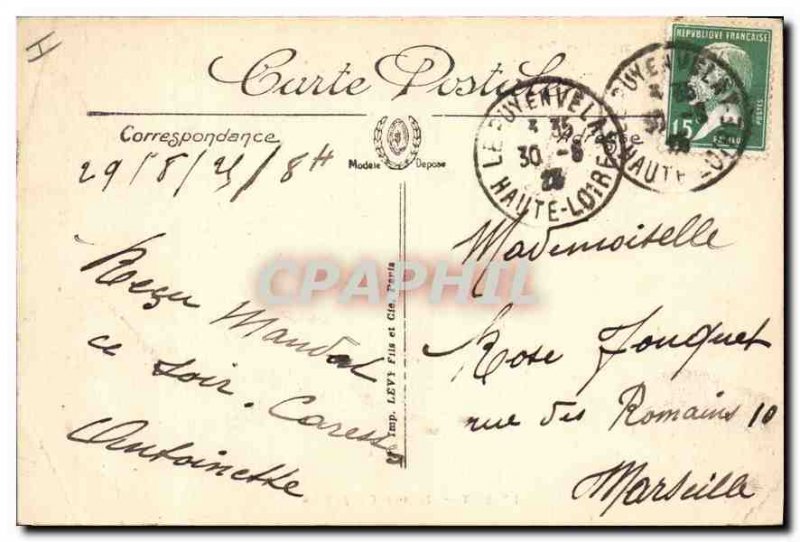 H
Carte Postale
RÉPUBLIQUE FRANÇAISE
POSTES
15
LE PUY EN VELAY
30 -8
HAUTE-LOIRE
PUY EN VELAY
HAUTE-LOIRE
Correspondance
Modèle Déposé
29/8/25/8H
Reçu Mandat
ce soir. Caresses
Antoinette
Imp. LEVY Fils et Cie, Paris
Mademoiselle
Rose Fouquet
rue des Romains 10
Marseille
CPAPHIL